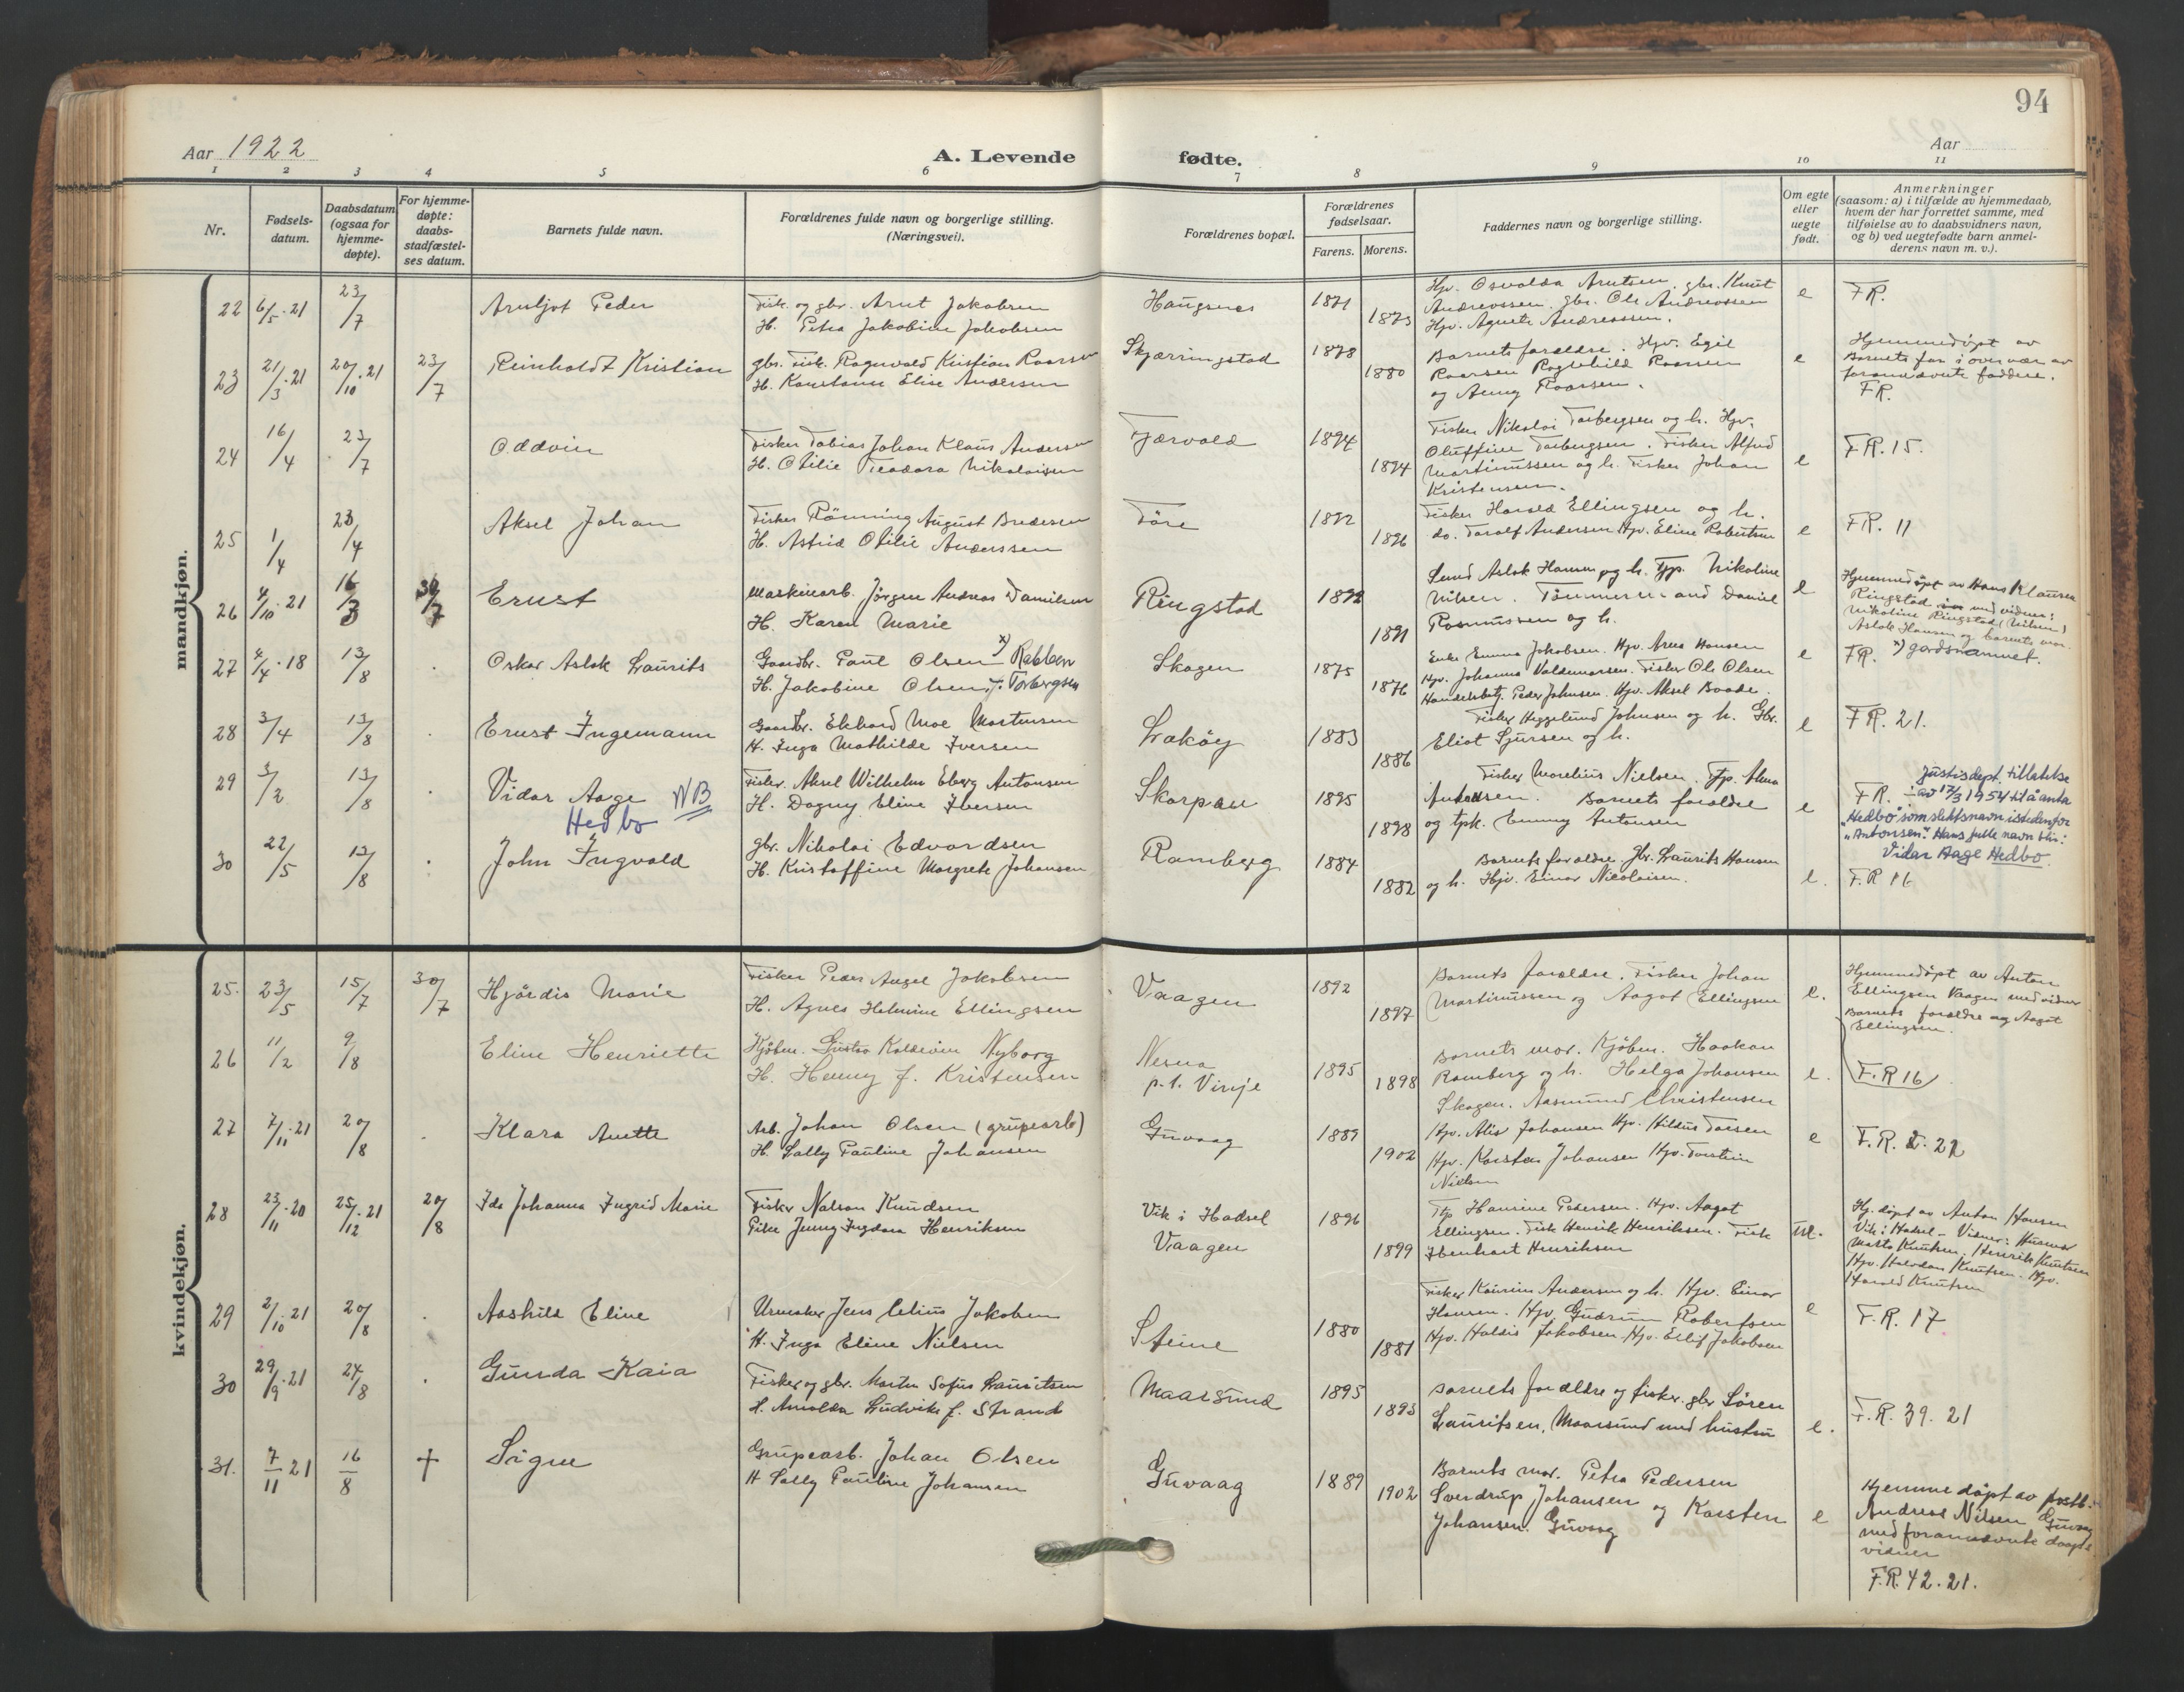 94
Aar 1922
A. Levende fødte.
Aar
1 2 3 4 5 6 7 8 9 10 11
Nr.
Fødsels-
datum.
Daabsdatum
(ogsaa for
hjemme-
døpte).
For hjemme-
døpte:
daabs-
stadfæstel-
ses datum.
Barnets fulde navn.
Forældrenes fulde navn og borgerlige stilling.
(Næringsvei).
Forældrenes bopæl.
Forældrenes
fødselsaar.
Farens. Morens.
Faddernes navn og borgerlige stilling.
Om egte
eller
uegte
født.
Anmerkninger
(saasom: a) i tilfælde av hjemmedaab,
hvem der har forrettet samme, med
tilføielse av to daabsvidners navn,
og b) ved uegtefødte barn anmel-
derens navn m. v.).
mandkjøn.
22 6/5.21 23/7 Arnljot Peder
Fisk. og gbr. Arnt Jakobsen
H. Petra Jakobine Jakobsen
Haugsnes 1871 1873
Hjv. Osvalda Arntsen, gbr. Knut
Andreassen, gbr. Ole Andreassen
Hjv. Agnete Andreassen.
e FR.
23 21/3.21 20/10.21 23/7 Reinholdt Kristian
gbr. Fisk. Ragnvald Kristian Roarsen
H. Konstanse Elise Andersen
Skjærringstad 1878 1880
Barnets forældre. Hjv. Egil
Roarsen Ragnhild Roarsen
og Aenny Roarsen.
e
Hjemmedöpt av
Barnets far i overvær av
forannævnte faddere.
FR.
24 16/4 23/7 Oddvin
Fisker Tobias Johan Klaus Andersen
H. Otilie Teodora Nikolaisen
Fjærvold 1894 1894
Fisker Nikolai Torbergsen og h. Hjv.
Oluffine Torbergsen. Fisker Alfred
Martinussen og h. Fisker Johan
Kristensen.
e FR. 15.
25 1/4 23/4 Aksel Johan
Fisker Rönning August Bredesen
H. Astrid Otilie Anderssen
Före 1892 1896
Fisker Harald Ellingsen og h.
do. Toralf Andersen Hjv. Eline Robertsen
e FR. 11
26 4/10.21 16/3 30/7 Ernst
Maskinarb. Jörgen Andreas Danielsen
H. Karen Marie
Ringstad 1892 1891
Smed Aslak Hansen og h. Tjp. Nikoline
Nilsen. Tömmermand Daniel
Rasmussen og h.
e
Hjemmedöpt av Hans Klausen
Ringstad med vidner:
Nikoline Ringstad (Nilsen)
Aslak Hansen og barnets mor.
27 4/4.18 13/8 Oskar Aslak Laurits
Gaardbr. Paul Olsen x) Rabben
H. Jakobine Olsen, f. Torbergsen
Skogen 1875 1876
Enke Emma Jakobsen. Hjv. Arna Hansen
Hjv. Johanna Valdemarsen. Fisker Ole Olsen
Handelsbetj. Peder Johnsen. Hjv. Aksel Baade.
e FR. x) gardsnamnet.
28 3/4 13/8 Ernst Ingemann
Gaardbr. Ekhard Moe Mortensen
H. Inga Mathilde Iversen
Laköy 1883 1886
Fisker Heggelund Johnsen og h. Gbr.
Eliot Sjursen og h.
e FR. 21.
29 3/2 13/8 Vidar Aage NB
Hedbo
Fisker Aksel Wilhelm Eberg Antonsen
H. Dagny Eline Iversen
Skarpen 1895 1898
Fisker Marelius Nielsen. Tjp. Alma
Antonsen. Barnets forældre
og tpk. Emmy Antonsen
e
FR. Justisdept. tillatelse
av 17/3 1954 til å anta
"Hedbo" som slektsnavn istedenfor
"Antonsen". Hans fulle navn blir:
Vidar Aage Hedbo.
30 22/5 13/8 John Ingvald
gbr. Nikolai Edvardsen
H. Kristoffine Margrete Johansen
Ramberg 1884 1882
Barnets forældre. Gbr. Laurits Hansen
og h. Hjv. Einar Nicolaisen.
e. F.R 16
kvindekjøn.
25. 23/5 15/7 30/7 Hjördis Marie
Fisker Peder Angel Jakobsen
H. Agnes Helmine Ellingsen
Vaagen 1892 1897
Barnets forældre. Fisker Johan
Martinussen og Aagot Ellingsen
e.
Hjemmedöpt av Anton
Ellingsen Vaagen med vidner
Barnets forældre og Aagot
Ellingsen.
26 11/2 9/8 Eline Henriette
Kjöbm. Gustav Koldevin Nyborg
H. Henny f. Kristensen
Nesna
p.t. Vinje 1895 1898
Barnets mor. Kjöbm. Haakon
Ramberg og h. Helga Johansen
Skogen. Aasmund Christensen
e. F.R 16
27 7/11.21 20/8 Klara Anette
Arb. Johan Olsen (grupearb)
H. Sally Pauline Johansen
Guvaag 1889 1902
Hjv. Alis Johansen Hjv. Hildus Toresen
Hjv. Karsten Johansen Hjv. Torstein
Nielsen
e F.R. 2. 22
28 23/11.20 25/12.21 20/8 Ida Johanna Ingrid Marie
Fisker Nelson Knudsen
Pike Jenny Ingdora Henriksen
Vik i Hadsel
Vaagen 1896 1899
Tjp Hansine Pedersen. Hjv. Aagot
Ellingsen. Fisk Henrik Henriksen. Fisk
Ibenhart Henriksen
ue.
Hj. döpt av Anton Hansen
Vik i Hadsel - Vidner: Husmor
Marta Knutsen. Henrik Knutsen
Hjv. Halvdan Knutsen. Hjv.
Harald Knutsen
29 2/10.21 20/8 Aashild Eline
Urmaker Jens Celius Jakobsen
H. Inga Eline Nielsen
Steine 1880 1881
Fisker Kaurin Andersen og h. Hjv. Einar
Hansen. Hjv Gudrun Robertsen
Hjv. Haldis Jakobsen. Hjv. Eilif Jakobsen
e F.R. 17
30 29/9.21 24/8 Gunda Kaia
Fisker og gbr. Morten Sofus Lauritsen
H. Arnolda Ludvika f. Strand
Maarsund 1895 1893
Barnets forældre og fisker. gbr Sören
Lauritsen, Maarsund med hustru
e. F.R. 39. 21
31. 7/11 21 16/8 † Signe
Grupearb. Johan Olsen
H Sally Pauline Johansen
Guvaag 1889 1902
Barnets mor. Petra Pedersen
Sverdrup Johansen og Karsten
Johansen. Guvaag
e
Hjemmedöpt av postb.
Andreas Nilsen Guvaag
med forannævnte daaps
vidner
F.R. 42. 21.